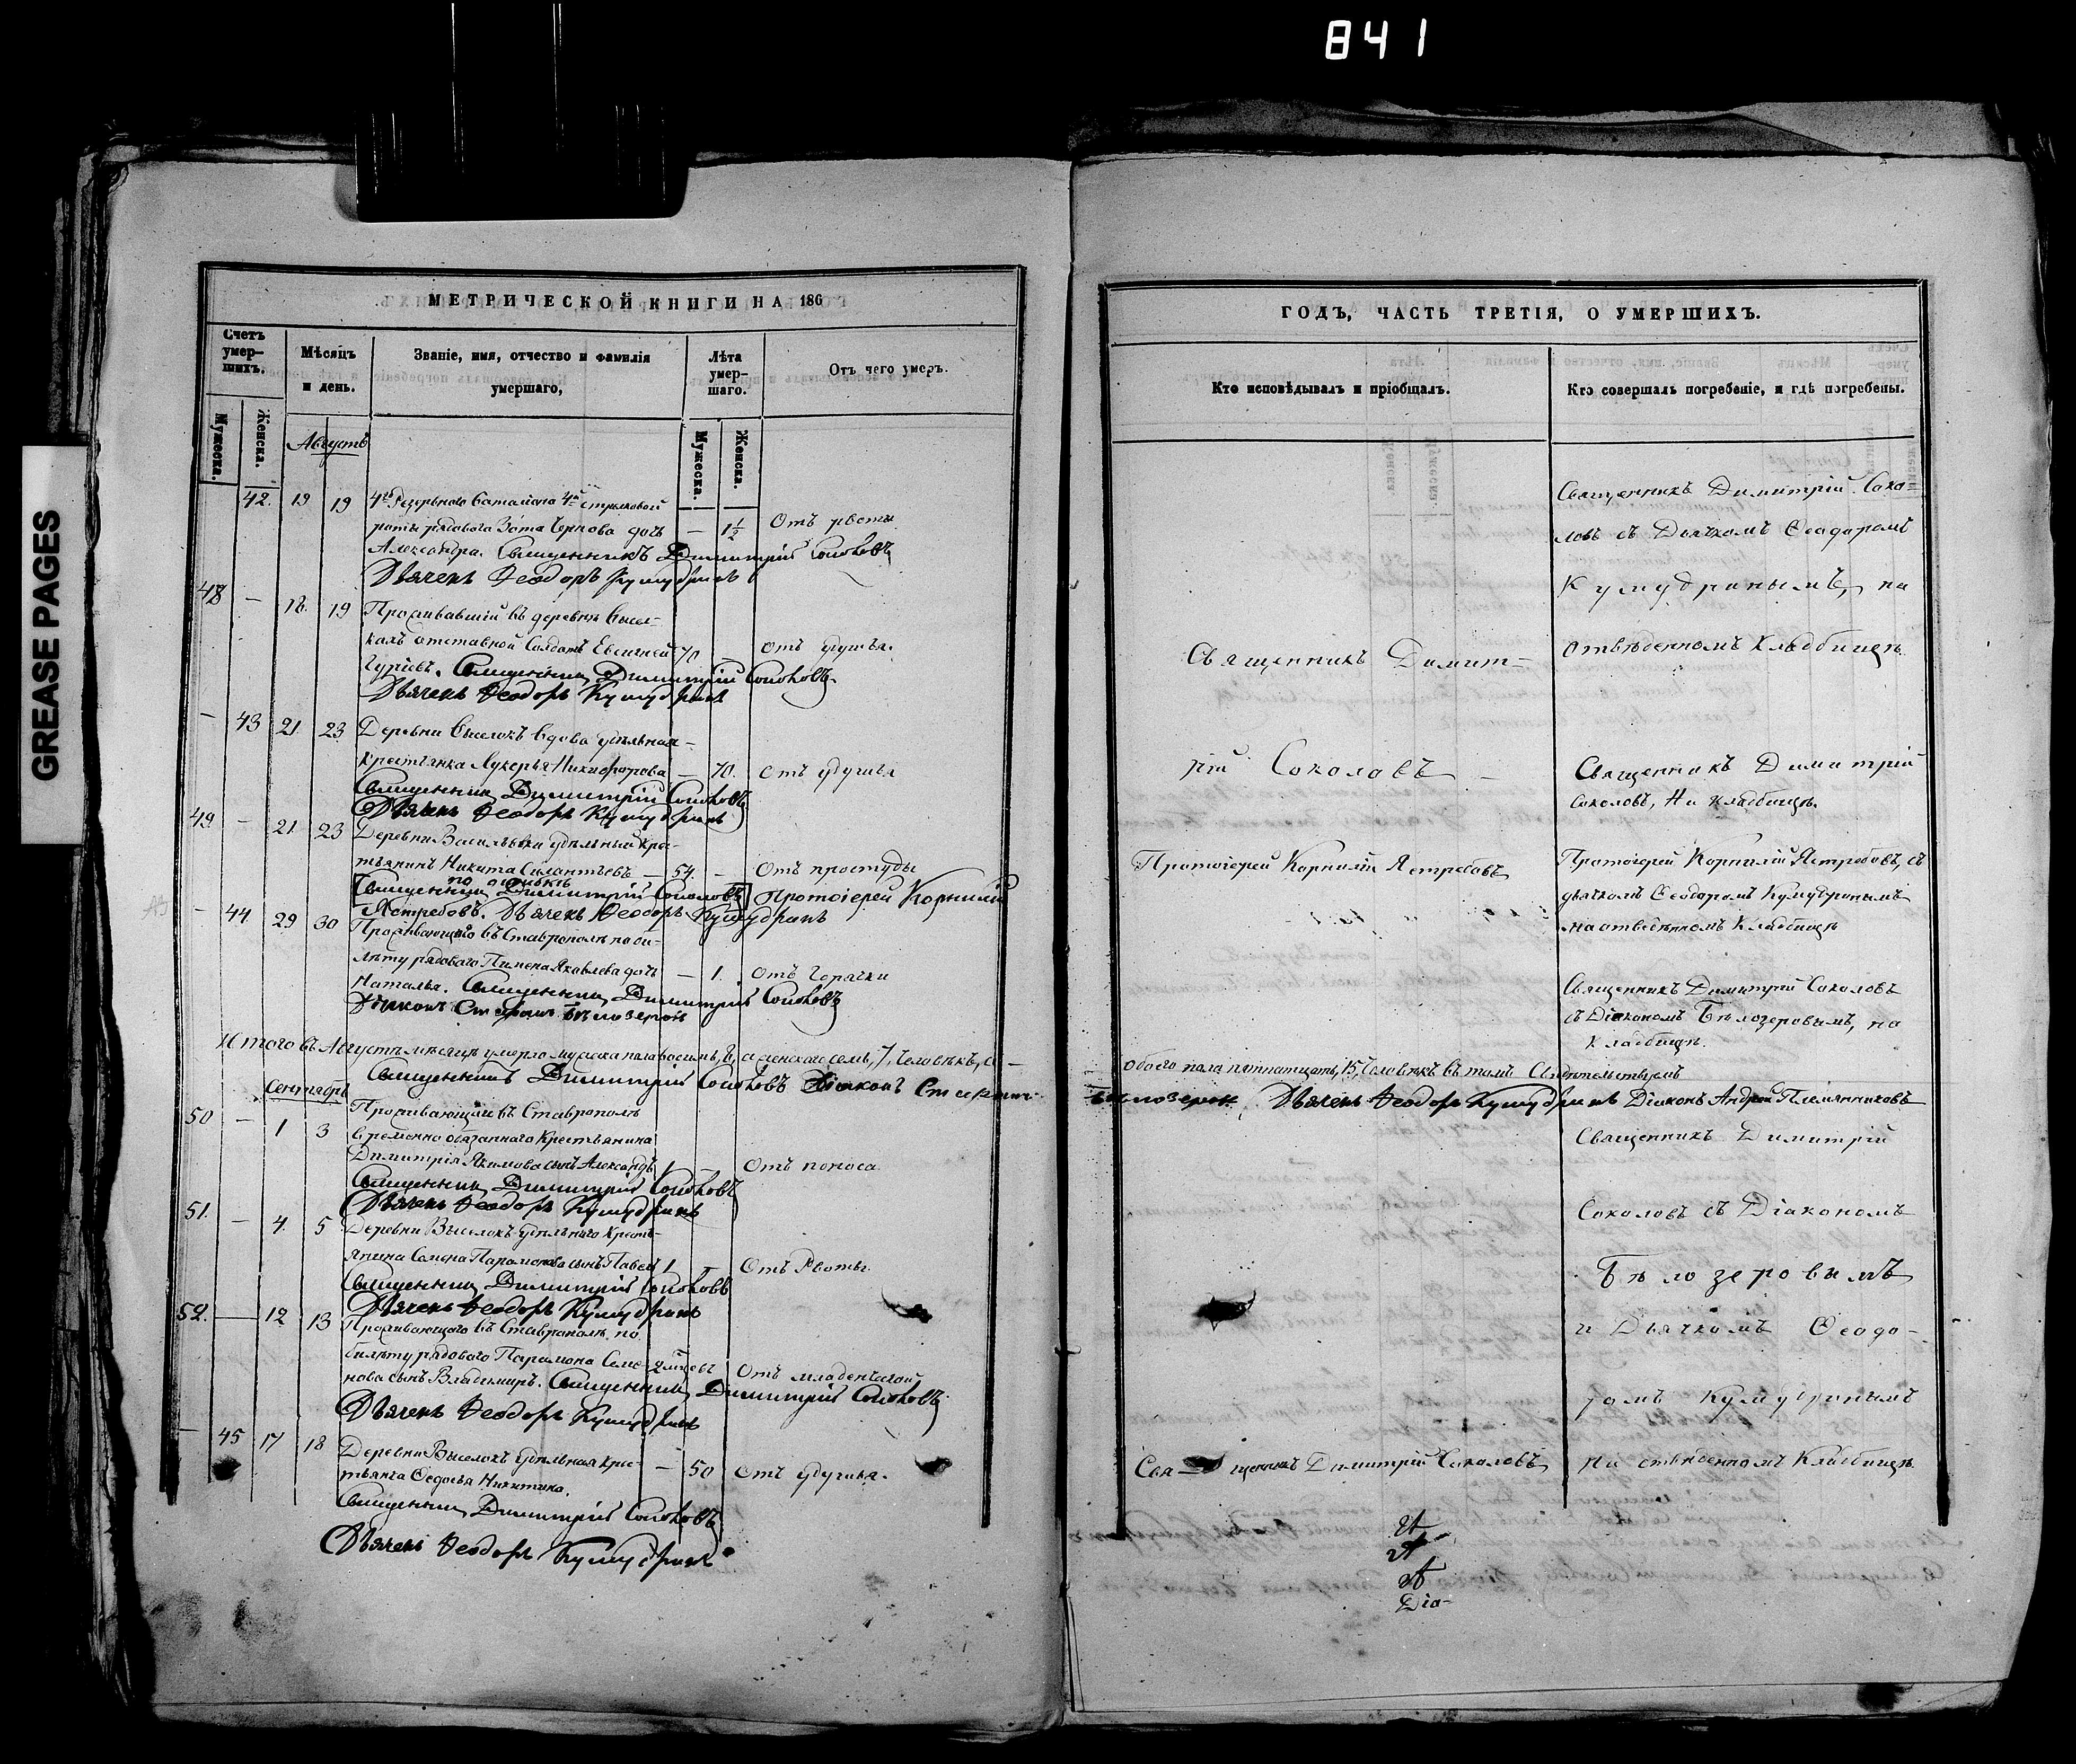 841
GREASE PAGES
МЕТРИЧЕСКОЙ КНИГИ НА 186
Счетъ умер-шихъ.
Мѣсяцъ и день.
Званіе, имя, отчество и фамилія умершаго,
Лѣта умер-шаго.
Отъ чего умеръ.
Мужеска.
Женска.
Мужеска.
Женска.
Августъ
42. 19 19 4го Резервнаго баталіона 4й стрѣлковой
роты рядоваго Зота Чернова дочь — 1½ Отъ рвоты
Александра. Священникъ Димитрій Соколовъ
Дьячекъ Ѳеодоръ Кумудринъ
48 — 18. 19 Проживавшій въ деревнѣ Высел-
кахъ отставной Солдатъ Евсигней 70 — Отъ удушья.
Гурьевъ. Священникъ Димитрій Соколовъ.
Дьячекъ Ѳеодоръ Кумудринъ
— 43 21 23 Деревни Выселокъ вдова удѣльная
крестьянка Лукерья Никифорова — 70. Отъ удушья
Священникъ Димитрій Соколовъ
Дьячекъ Ѳеодоръ Кумудринъ
49. — 21 23 Деревни Васильевки удѣльный кре-
стьянинъ Никита Силантьевъ — 54. — Отъ простуды
по ошибкѣ
[Священникъ Димитрій Соколовъ] Протоіерей Корнилій
Ястребовъ. Дьячекъ Ѳеодоръ Кумудринъ
— 44 29 30 Проживающаго въ Ставрополѣ по би-
лету рядоваго Пимена Яковлева дочь — 1. Отъ Горячки
Наталья. Священникъ Димитрій Соколовъ
Діаконъ Стефанъ Бѣлозеровъ
Итого въ Августѣ мѣсяцѣ умерло мужеска пола восемь, 8, а женскаго семь, 7, человѣкъ, а
Священникъ Димитрій Соколовъ Діаконъ Стефанъ
Сентябрь
50 — 1 3 Проживающаго въ Ставрополѣ
временно обязаннаго Крестьянина
Димитрія Якимова сынъ Александръ 1 — Отъ поноса
Священникъ Димитрій Соколовъ
Дьячекъ Ѳеодоръ Кумудринъ
51. — 4. 5 Деревни Выселокъ удѣльнаго Кресть-
янина Семена Парамонова сынъ Павелъ 1 — Отъ Рвоты.
Священникъ Димитрій Соколовъ
Дьячекъ Ѳеодоръ Кумудринъ
52. — 12 13 Проживающаго въ Ставрополѣ по
билету рядоваго Парамона Семе- Отъ младенческой
нова сынъ Владимиръ. Священникъ Димитрій Соколовъ
Дьячекъ Ѳеодоръ Кумудринъ
— 45 17 18 Деревни Выселокъ удѣльная крес-
тьянка Ѳедосья Никитина. — 50 Отъ удушья.
Священникъ Димитрій Соколовъ
Дьячекъ Ѳеодоръ Кумудринъ
ГОДЪ, ЧАСТЬ ТРЕТІЯ, О УМЕРШИХЪ.
Кто исповѣдывалъ и пріобщалъ.
Кто совершалъ погребеніе, и гдѣ погребены.
Священникъ Димитрій Соко-
ловъ съ Дьячкомъ Ѳеодоромъ
Кумудринымъ, на
Священникъ Димит- отведенномъ Кладбищѣ
рій Соколовъ — Священникъ Димитрій
Соколовъ, На Кладбищѣ.
Протоіерей Корнилій Ястребовъ Протоіерей Корнилій Ястребовъ, съ
дьячкомъ Ѳеодоромъ Кумудринымъ
на отведенномъ Кладбищѣ
Священникъ Димитрій Соколовъ
съ Діакономъ Бѣлозеровымъ, на
Кладбищѣ.
обоего пола пятнатцать, 15, Человѣкъ въ томъ Свидѣтельствуемъ
Бѣлозеровъ, Дьячекъ Ѳеодоръ Кумудринъ Діаконъ Андрей Племянниковъ
Священникъ Димитрій
Соколовъ съ Діакономъ
Бѣлозеровымъ
и Дьячкомъ Ѳеодо-
ромъ Кумудринымъ
Священникъ Димитрій Соколовъ На отведенномъ Кладбищѣ.
Діа-